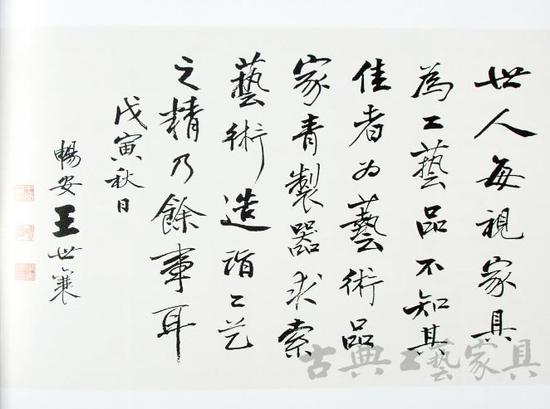 世人每視家具
為工藝品不知其
佳者為藝術品
家青製器求索
藝術造詣工艺
之精乃餘事耳
戊寅秋日
暢安王世襄
古典工藝家具